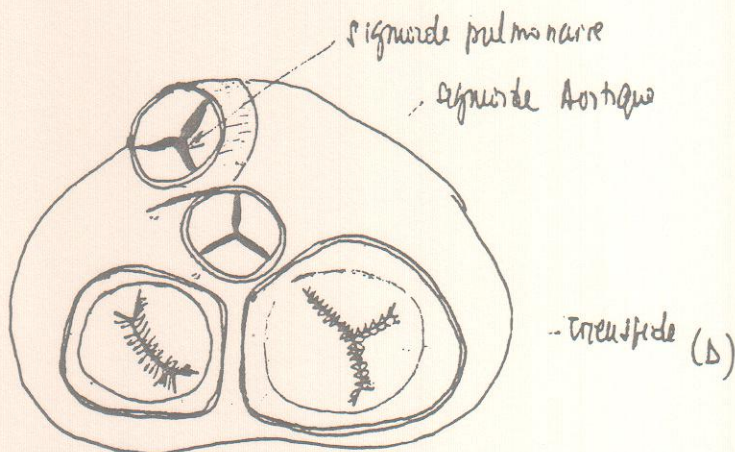 sigmoïde pulmonaire
sigmoïde Aortique
Tricuspide (D)